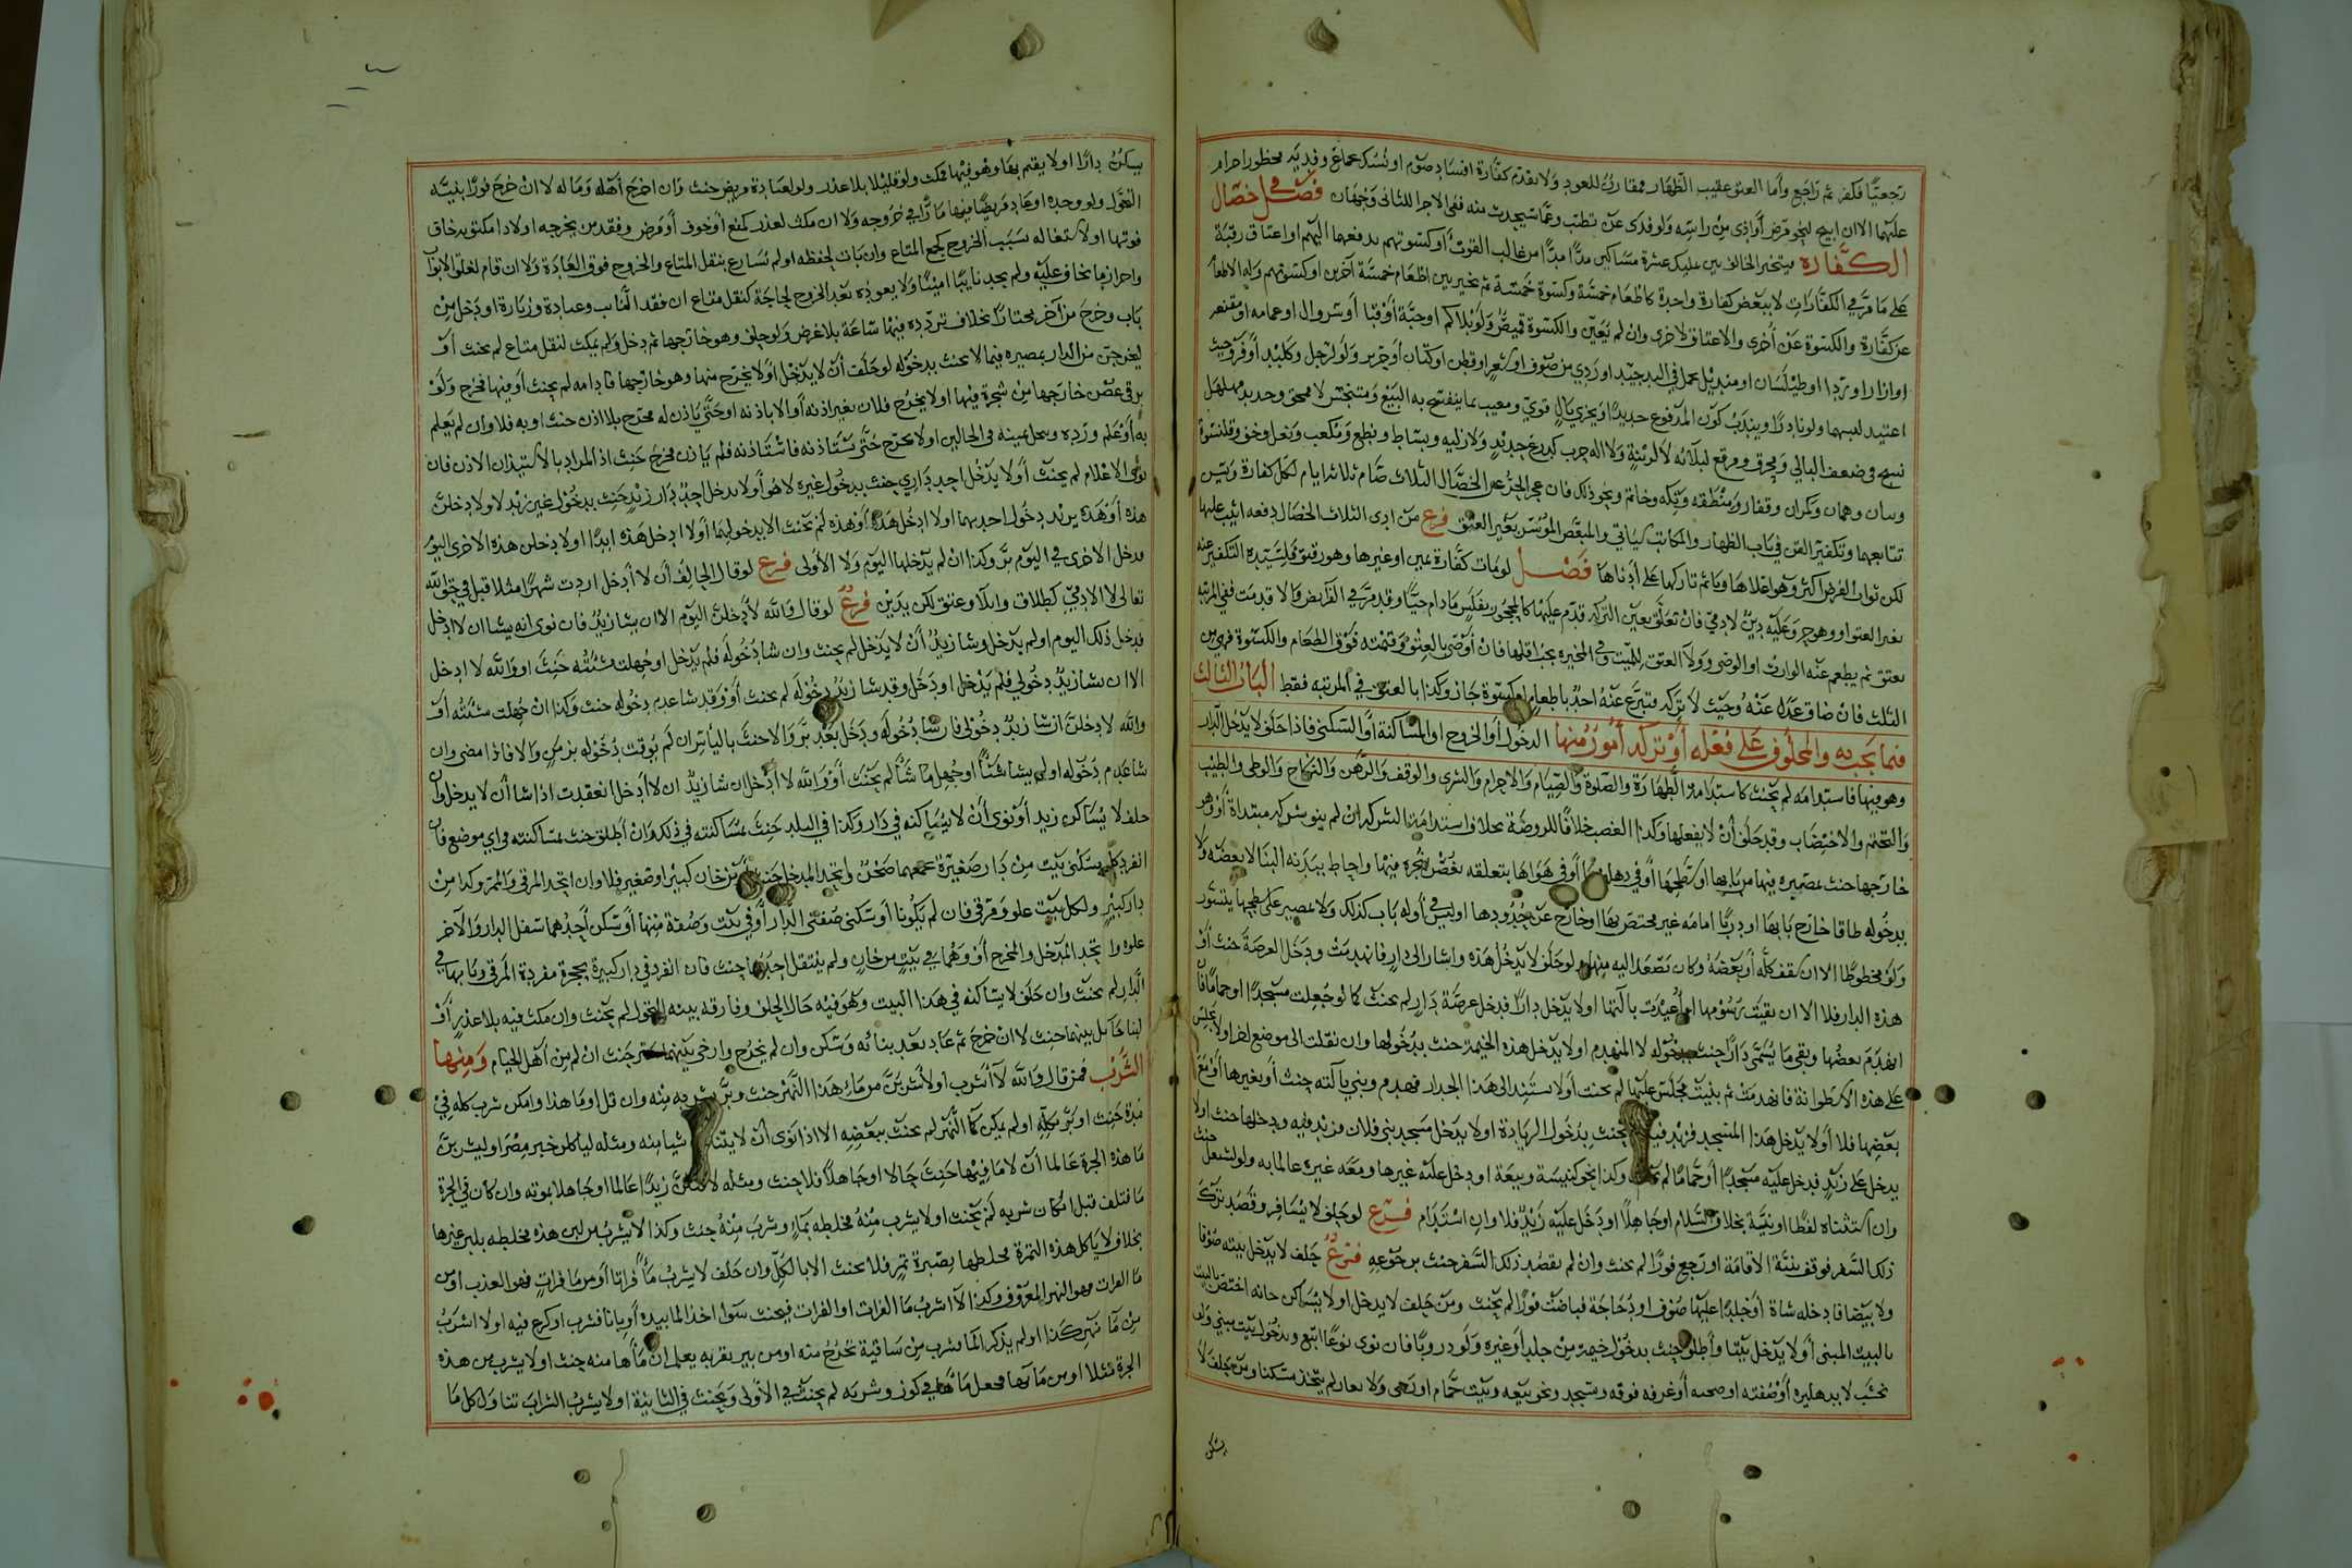 رجعيًا فكفر ثم راجع وأما العتق عقيب الظهار فمقارن للعود ولا يقدم كفارة افساد صوم او نسك بجماع وفدية محظور احرام
عليهما الا ان ابيح لنحو مرض أو اذى من راسه ولو فدى عن تطيب وعما سيحدث منه ففي الاجزا للثاني وجهان فصل في خصال
الكفارة فيتخير الحالف بين تمليك عشرة مساكين مدًّا مدًّا من غالب القوت أو كسوتهم بدفعها اليهم او اعتاق رقبة
على ما مر في الكفارات لا يبعض كفارة واحدة كاطعام خمسة وكسوة خمسة ثم يخير بين اطعام خمسة آخرين او كسوتهم وله الاطعام
عن كفارة والكسوة عن أخرى والاعتاق لاخرى وان لم يعين والكسوة قميص ولو بلا كم او جبة أو قبا أو سروال او عمامه او مقنعه
او ازار او ردا او طيلسان او منديل يحمل في اليد جيد او ردي من صوف او شعر او قطن او كتان أو حرير ولو لرجل وكلبد أو فروحيث
اعتيد لبسهما ولو نادرًا ويندب كون المدفوع جديدًا ويجزي بالٍ قوي ومعيب بما ينفتح به البيع ومتنجس لا ممحق وجديد مهلهل
نسج وضعف البالي ومخرق ومرقع لبلائه لا لزينة ولا اله حرب كدرع جديد ولا زليه وبساط ونطع ومكعب ونعل وخف وقلنسوة
وتبان وهميان وتكران وقفاز ومنطقه وتكه وخاتم ونحو ذلك فان عجز الحر عن الخصال الثلاث صام ثلاثة ايام لكل كفارة وليس
تتابعهما وتكفير القن في باب الظهار والمكاتب سياتي والمبعض الموسر بغير العتق فرع من ادى الثلاث الخصال دفعه اثيب عليها
لكن ثواب الفرض اكثر وهو اعلاها وياثم تاركها على أدناها فصل لو مات كفارة يمين او غيرها وهو رقيق فلسيده التكفير عنه
بغير العتق او وهو حر وعليه دين لادمي فان تعلق بعين التركه قدم عليها كالمحجور بفلس ما دام حيًّا وقد مر في الفرايض والا قدمت ففي المرتبه
يعتق ثم يطعم عنه الوارث او الوصي وولا العتق للميت وفي المخيره يجب اقلها فان أوصى بالعتق وقيمته فوق الطعام والكسوة فهي من
الثلث فان ضاق عدل عنه وحيث لا تركه فتبرع عنه احد باطعام او كسوة جاز وكذا بالعتق في المرتبه فقط الباب الثالث
فيما يجب به والمحلوف على فعله أو تركه أمور منها الدخول أو الخروج او المساكنة أو السكنى فاذا حلف لا يدخل الدار
وهو فيها فاستدامه لم يحنث كاستدامة الطهارة والصلوة والصيام والاحرام والشري والوقف والرهن والنكاح والوطي والطيب
والتختم والاختضاب وقد حلف أن لا يفعلها وكذا الغصب خلافًا للروضة بخلاف استدامة الشركه ان لم ينو شركه مبتداة أو وهو
خارجها حنث بمصيره فيها من بابها او سطحها أو في دهليزها أو في هواها بتعلقه بغصن شجره فيها واحاط ببدنه البنا لا ببعضه ولا
بدخوله طاقا خارج بابها او دربا امامه غير مختص بها او خارج عن حدودها او ليس في أوله باب كذلك ولا بمصير على سطحها يتسور
ولو محوطًا الا ان سقف كله أو بعضه وكان يصعد اليه منها ولو حلف لا يدخل هذه واشار الى دار فانهدمت ودخل العرصة حنث أو
هذه الدار فلا الا ان بقيت رسومها او أعيدت بآلتها او لا يدخل دارًا فدخل عرصة دار لم يحنث كما لو جعلت مسجدًا او حمامًا فان
انهدم بعضها وبقي ما يسمى دارًا حنث بدخوله لا المنهدم او لا يدخل هذه الخيمة حنث بدخولها وان نقلت الى موضع اخر او لا يجلس
على هذه الاسطوانة فانهدمت ثم بنيت فجلس عليها لم يحنث أو لا يستند الى هذا الجدار فهدم وبني بآلته حنث أو بغيرها أو مع
بعضها فلا أو لا يدخل هذا المسجد فزيد فيه لم يحنث بدخول الزيادة او لا يدخل مسجد بني فلان فزيد فيه ودخلها حنث او لا
يدخل على زيد فدخل عليه مسجدًا أو حمامًا لم يحنث وكذا نحو كنيسة وبيعة او دخل عليه غيرها ومعه غيره عالما به ولو لشغل حنث
وان استثناه لفظًا او نيته بخلاف السلام او جاهلًا او دخل عليه زيد فلا وان استدام فرع لو حلف لا يسافر وقصد تركه
ذلك السفر فوقف بنية الاقامة او رجع فورًا لم يحنث وان لم يقصد ذلك السفر حنث برجوعه فرع حلف لا يدخل بيته صوفا
ولا بيضا فادخله شاة أو جلدًا عليها صوف او دجاجة فباضت فورًا لم يحنث ومن حلف لا يدخل او لا يساكن حانه اختص بالبيت
بالبيت المبنى أو لا يدخل بيتًا وأطلق حنث بدخول خيمة من جلد أو غيره ولو دروبًا فان نوى نوعًا اتبع وبدخول بيت مبني ولو
بخشب لا بدهليزه أو صفته او صحنه أو غرفه فوقه ومسجد ونحو بيعه وبيت حمام او رحى ولا بغار لم يتخذ مسكنا ومن حلف لا
يسكن
يسكن دارًا او لا يقيم بها وهو فيها فمكث ولو قليلا بلا عذر ولو لعيادة مريض حنث وان اخرج أهله وماله لا ان خرج فورًا بنية
التحول ولو وحده او عاد مريضًا فيها مارًّا في خروجه ولا ان مكث لعذر كمنع أو خوف أو مرض وفقد من يخرجه او لادا مكتوبه خاف
فوتها او لاشتغاله بسبب الخروج كجمع المتاع وان بات لحفظه او لم يسارع بنقل المتاع والخروج فوق العادة ولا ان قام لغلق الابواب
واحراز ما يخاف عليه ولم يجد نايبًا امينًا ولا يعوده بعد الخروج لحاجة كنقل متاع ان فقد النايب وعيادة وزيارة او دخل من
باب وخرج من آخر مجتازًا بخلاف تردده فيها ساعة بلا غرض ولو حلف وهو خارجها ثم دخل ولم يمكث لنقل متاع لم يحنث أو
ليخرجن من الدار بمصيره فيما لا يحنث بدخوله لو حلف أن لا يدخل او لا يخرج منها وهو خارجها فادامه لم يحنث أو فيها فخرج ولو
برقي غصن خارجها من شجرة فيها او لا يخرج فلان بغير اذنه أو الا باذنه او حتى ياذن له فخرج بلا اذن حنث او به فلا وان لم يعلم
به أو علم ورده وتنحل يمينه في الحالين او لا يخرج حتى يستاذنه فاستاذنه فلم ياذن فخرج حنث اذ المراد بالاستيذان الاذن فان
نوى الاعلام لم يحنث أو لا يدخل احد داري حنث بدخول غيره لا هو أو لا يدخل احد دار زيد حنث بدخول غير زيد لا ولا دخلن
هذه أو هذه بر بدخول احديهما او لا ادخل هذه أو هذه لم يحنث الا بدخولهما أو لا ادخل هذه ابدًا او لادخلن هذه الاخرى اليوم
فدخل الاخرى في اليوم بر وكذا ان لم يدخلها اليوم ولا الأولى فرع لو قال الحالف أن لا أدخل اردت شهرًا مثلا قبل في حق الله
تعالى لا الادمي كطلاق وايلا وعتق لكن يدين فرع لو قال والله لأدخلن اليوم الا ان يشا زيد فان نوى انه يشا ان لا ادخل
فدخل ذلك اليوم او لم يدخل وشا زيد أن لا يدخل لم يحنث وان شا دخوله فلم يدخل او جهلت مشئته حنث او والله لا ادخل
الا ان يشا زيد دخولي فلم يدخل او دخل وقد شا زيد دخوله لم يحنث أو وقد شا عدم دخوله حنث وكذا ان جهلت مشئته أو
والله لادخلن ان شا زيد دخولي فان شا دخوله ودخل بعد بر والا حنث بالياس ان لم يوقت دخوله بزمن والا فاذا مضى وان
شا عدم دخوله او لم يشا شئًا او جهل ما شا لم يحنث أو والله لا ادخل ان شا زيد ان لا أدخل انعقدت اذا شا أن لا يدخل وان
حلف لا يساكن زيد أو نوى أن لا يساكنه في دار وكذا في البلد حنث بمساكنته في ذلك وان أطلق حنث بمساكنته في اي موضع فان
انفرد كل بسكنى بيت من دار صغيرة يجمعهما صحن واتحد المدخل حنث أو من خان كبير او صغير فلا وان اتحد المرقى والممر وكذا من
دار كبير ولكل بيت علو ومرقى فان لم يكونا أو سكنى صفتي الدار أو في بيت وصفة منها أو سكن أحدهما سفل الدار والآخر
علوه واتحد المدخل والمخرج أو وهما في بيت من خان ولم ينتقل احدهما حنث فان انفرد في دار كبيرة بحجرة مفردة المرقى وبابها في
الدار لم يحنث وان حلف لا يساكنه في هذا البيت وهو فيه حال الحلف وفارقه بنية التحول لم يحنث وان مكث فيه بلا عذر أو
لبنا حايل بينهما حنث لا ان خرج ثم عاد بعد بنائه وسكن وان لم يخرج وارخي بينهما ستر حنث ان لم يكن من أهل الخيام ومنها
الشرب فمن قال والله لا أشرب او لأشربن من ماء هذا النهر حنث وبر بشربه منه وان قل او ما هذا وامكن شرب كله في
مدة حنث او بر بكله او لم يمكن كما النهر لم يحنث ببعضه الا اذا نوى أن لا يتناول شيا منه ومثله لياكلن خبز مصر او ليشربن
ما هذه الجرة عالما أن لا ما فيها حنث حالا او جاهلًا فلا حنث ومثله لاقتلن زيدًا عالما او جاهلا بموته وان كان في الجرة
ما فتلف قبل امكان شربه لم يحنث او لا يشرب منه فخلطه بماء وشرب منه حنث وكذا لا يشرب من لبن هذه فخلطه بلبن غيرها
بخلاف لا ياكل هذه التمرة فخلطها بصبرة تمر فلا يحنث الا بالكل وان حلف لا يشرب ماءً فراتا أو من ما فرات فهو العذب او من
ما الفرات فهو النهر المعروف وكذا لا اشرب ما الفرات او الفرات فيحنث سوا اخذ الما بيده أو بانا فشرب او كرع فيه او لا اشرب
من ما نهر كذا او لم يذكر الما فشرب من ساقية تخرج منه او من بير بقربه يعلم ان ماها منه حنث او لا يشرب من هذه
الجرة مثلا او من مائها فجعل مائها في كوز وشربه لم يحنث في الأولى ويحنث في الثانية او لا يشرب الشراب تناول كل ما